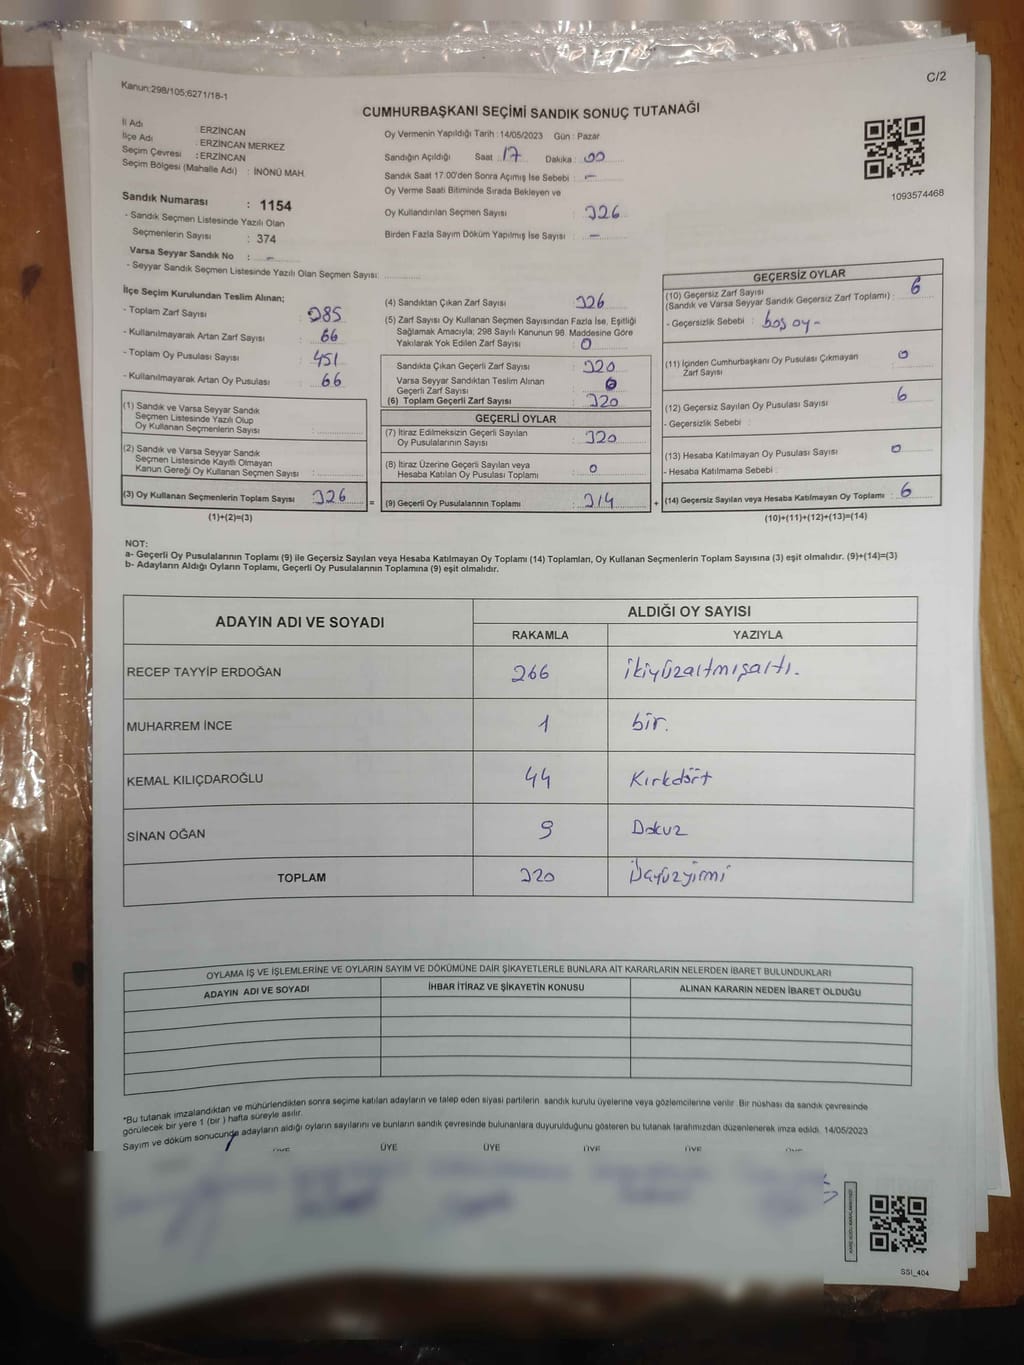 Kanun;298/105;6271/18-1
C/2
CUMHURBAŞKANI SEÇİMİ SANDIK SONUÇ TUTANAĞI
İl Adı : ERZİNCAN
İlçe Adı : ERZİNCAN MERKEZ
Seçim Çevresi : ERZİNCAN
Seçim Bölgesi (Mahalle Adı) : İNÖNÜ MAH.
Sandık Numarası : 1154
- Sandık Seçmen Listesinde Yazılı Olan
Seçmenlerin Sayısı : 374
Varsa Seyyar Sandık No : -
- Seyyar Sandık Seçmen Listesinde Yazılı Olan Seçmen Sayısı:
Oy Vermenin Yapıldığı Tarih :14/05/2023 Gün : Pazar
Sandığın Açıldığı Saat : 17 Dakika : 00
Sandık Saat 17:00'den Sonra Açımış İse Sebebi : -
Oy Verme Saati Bitiminde Sırada Bekleyen ve
Oy Kullandırılan Seçmen Sayısı : 326
Birden Fazla Sayım Döküm Yapılmış İse Sayısı : -
1093574468
İlçe Seçim Kurulundan Teslim Alınan;
- Toplam Zarf Sayısı : 385
- Kullanılmayarak Artan Zarf Sayısı : 66
- Toplam Oy Pusulası Sayısı : 451
- Kullanılmayarak Artan Oy Pusulası : 66
(1) Sandık ve Varsa Seyyar Sandık
Seçmen Listesinde Yazılı Olup
Oy Kullanan Seçmenlerin Sayısı :
(2) Sandık ve Varsa Seyyar Sandık
Seçmen Listesinde Kayıtlı Olmayan
Kanun Gereği Oy Kullanan Seçmen Sayısı :
(3) Oy Kullanan Seçmenlerin Toplam Sayısı : 326 =
(1)+(2)=(3)
(4) Sandıktan Çıkan Zarf Sayısı : 326
(5) Zarf Sayısı Oy Kullanan Seçmen Sayısından Fazla İse, Eşitliği
Sağlamak Amacıyla; 298 Sayılı Kanunun 98. Maddesine Göre
Yakılarak Yok Edilen Zarf Sayısı : 0
Sandıkta Çıkan Geçerli Zarf Sayısı : 320
Varsa Seyyar Sandıktan Teslim Alınan
Geçerli Zarf Sayısı : 0
(6) Toplam Geçerli Zarf Sayısı : 320
GEÇERLİ OYLAR
(7) İtiraz Edilmeksizin Geçerli Sayılan
Oy Pusulalarının Sayısı : 320
(8) İtiraz Üzerine Geçerli Sayılan veya
Hesaba Katılan Oy Pusulası Toplamı : 0
(9) Geçerli Oy Pusulalarının Toplamı : 314 +
GEÇERSİZ OYLAR
(10) Geçersiz Zarf Sayısı
(Sandık ve Varsa Seyyar Sandık Geçersiz Zarf Toplamı) : 6
- Geçersizlik Sebebi : boş oy -
(11) İçinden Cumhurbaşkanı Oy Pusulası Çıkmayan
Zarf Sayısı : 0
(12) Geçersiz Sayılan Oy Pusulası Sayısı : 6
- Geçersizlik Sebebi :
(13) Hesaba Katılmayan Oy Pusulası Sayısı : 0
- Hesaba Katılmama Sebebi :
(14) Geçersiz Sayılan veya Hesaba Katılmayan Oy Toplamı : 6
(10)+(11)+(12)+(13)=(14)
NOT:
a- Geçerli Oy Pusulalarının Toplamı (9) ile Geçersiz Sayılan veya Hesaba Katılmayan Oy Toplamı (14) Toplamları, Oy Kullanan Seçmenlerin Toplam Sayısına (3) eşit olmalıdır. (9)+(14)=(3)
b- Adayların Aldığı Oyların Toplamı, Geçerli Oy Pusulalarının Toplamına (9) eşit olmalıdır.
ADAYIN ADI VE SOYADI
ALDIĞI OY SAYISI
RAKAMLA YAZIYLA
RECEP TAYYİP ERDOĞAN 266 ikiyüzaltmışaltı.
MUHARREM İNCE 1 bir.
KEMAL KILIÇDAROĞLU 44 Kırkdört
SİNAN OĞAN 9 Dokuz
TOPLAM 320 Üçyüzyirmi
OYLAMA İŞ VE İŞLEMLERİNE VE OYLARIN SAYIM VE DÖKÜMÜNE DAİR ŞİKAYETLERLE BUNLARA AİT KARARLARIN NELERDEN İBARET BULUNDUKLARI
ADAYIN ADI VE SOYADI İHBAR İTİRAZ VE ŞİKAYETİN KONUSU ALINAN KARARIN NEDEN İBARET OLDUĞU
*Bu tutanak imzalandıktan ve mühürlendikten sonra seçime katılan adayların ve talep eden siyasi partilerin sandık kurulu üyelerine veya gözlemcilerine verilir. Bir nüshası da sandık çevresinde
görülecek bir yere 1 (bir) hafta süreyle asılır.
Sayım ve döküm sonucunda adayların aldığı oyların sayılarını ve bunların sandık çevresinde bulunanlara duyurulduğunu gösteren bu tutanak tarafımızdan düzenlenerek imza edildi. 14/05/2023
ÜYE ÜYE ÜYE ÜYE ÜYE
SSI_404